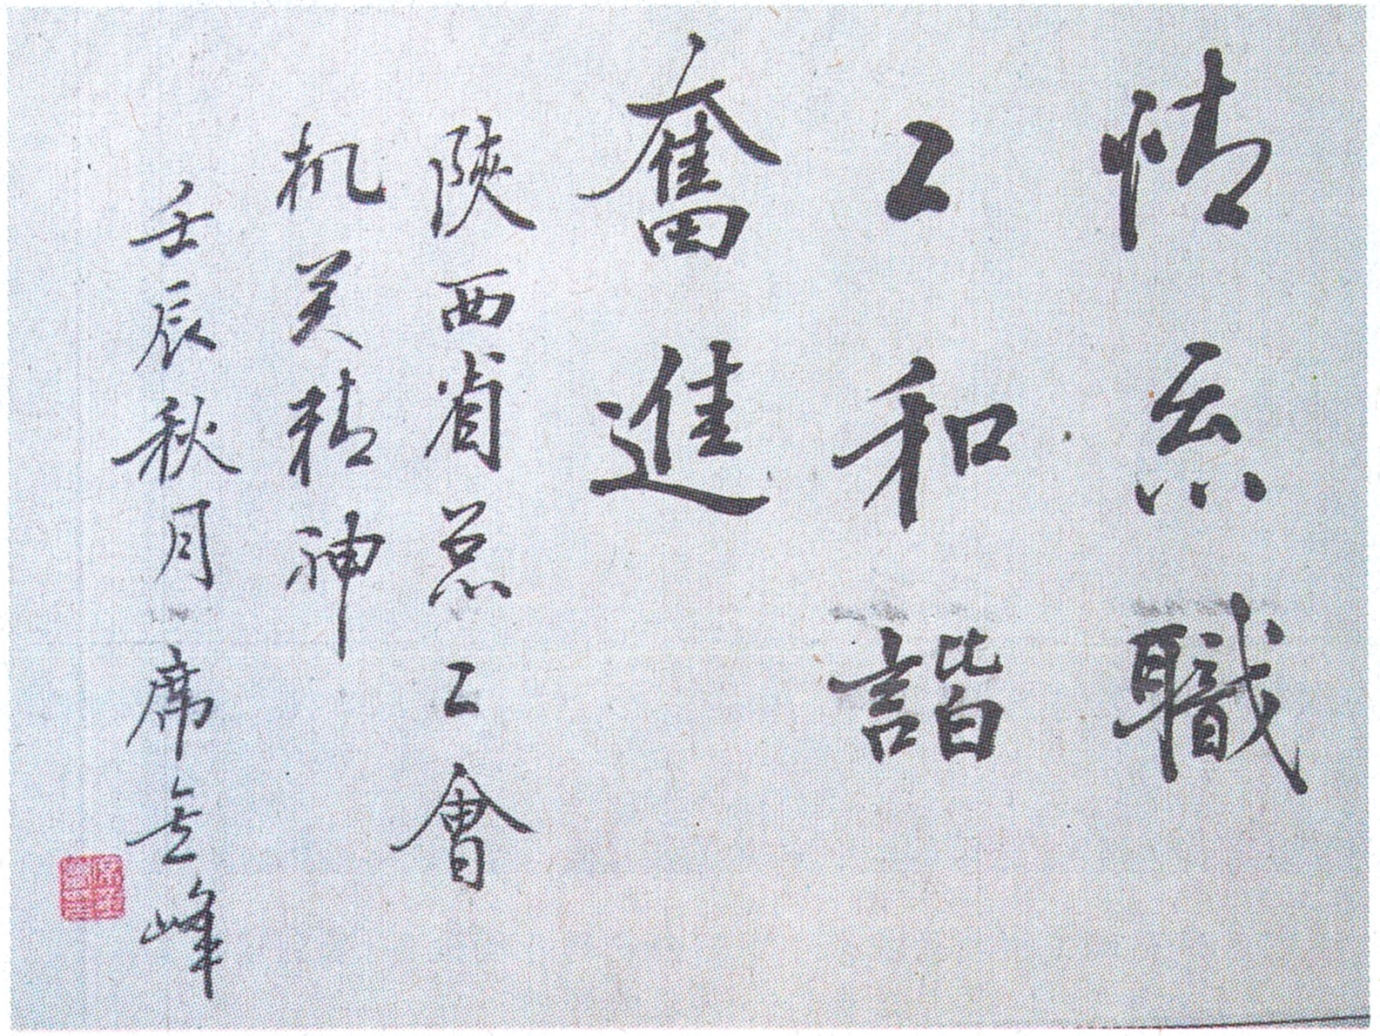 情系職
工和諧
奮進
陝西省总工會
机关精神
壬辰秋月 席峰